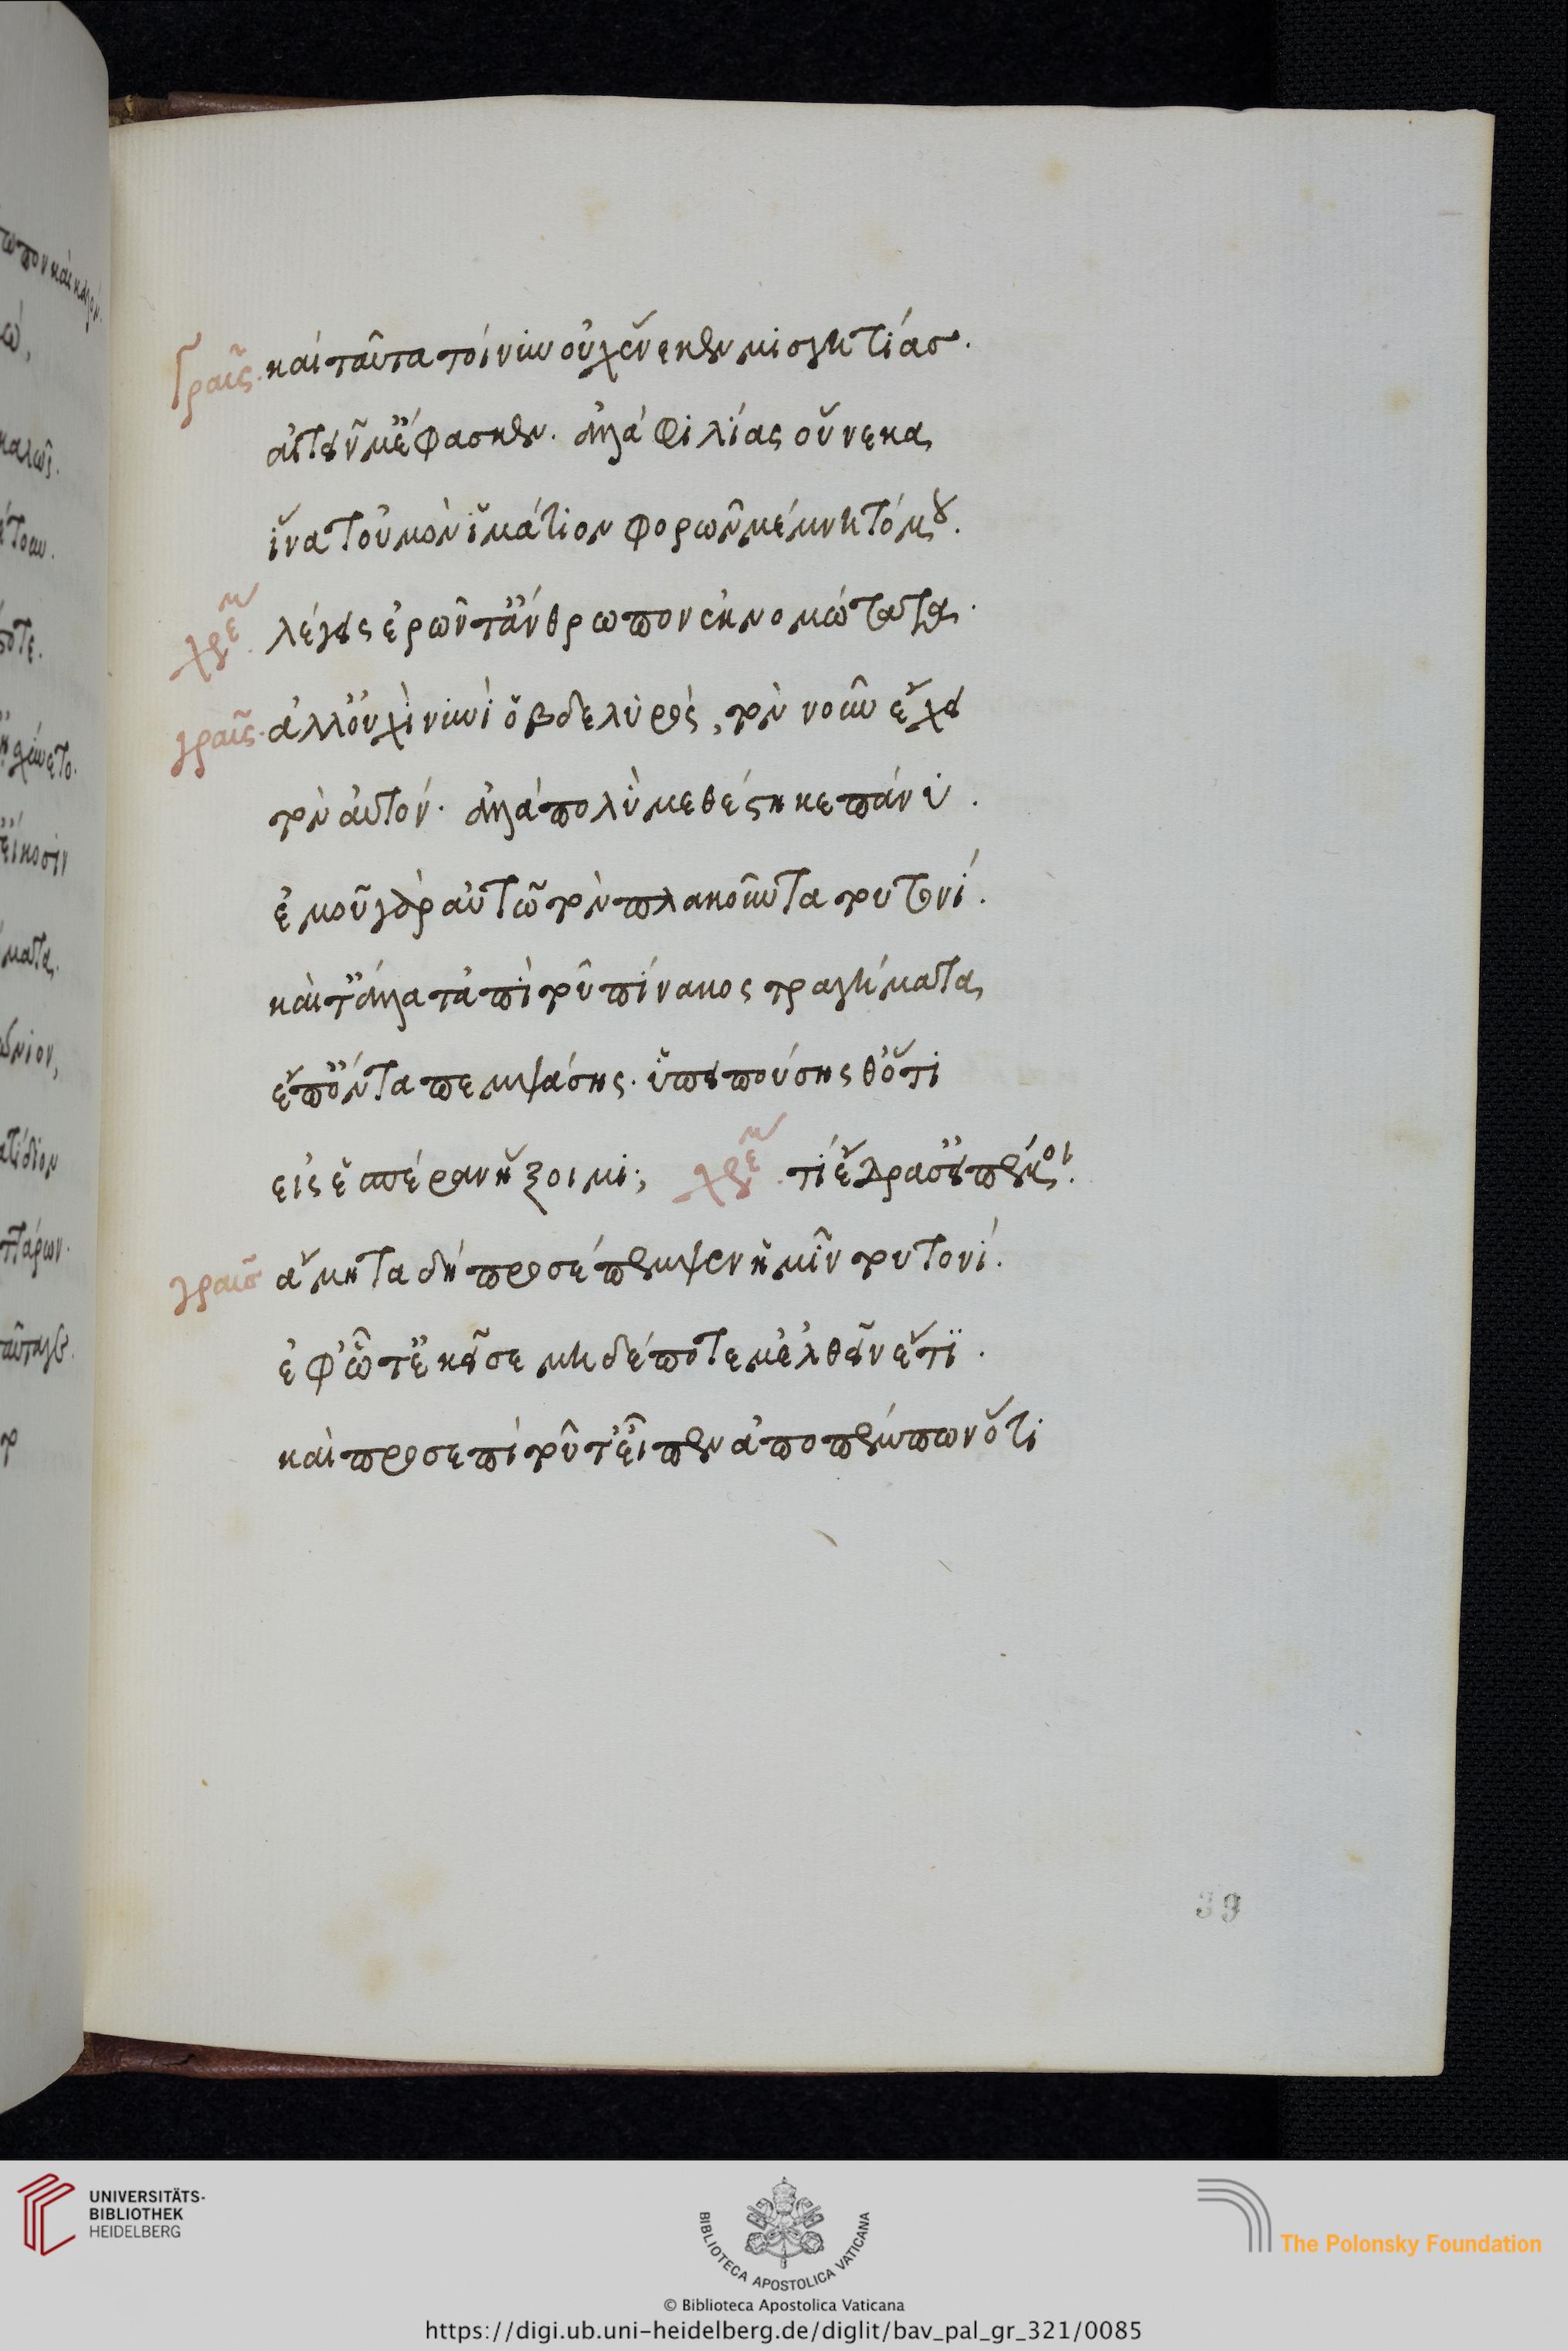 Γραῦς. καὶ ταῦτα τοίνυν οὐχ ἕνεκεν μισητίας.
αἰτεῖν μ' ἔφασκεν. ἀλλὰ φιλίας οὕνεκα,
ἵνα τοὐμὸν ἱμάτιον φορῶν μεμνῇτό μου.
χρεμ. λέγεις ἐρῶντ' ἄνθρωπον ἐκνομιώτατα.
γραῦς. ἀλλ' οὐχὶ νυνί ὁ βδελυρός, τὸν νοῦν ἔχει
τὸν αὐτόν. ἀλλὰ πολὺ μεθέστηκε πάνυ.
ἐμοῦ γὰρ αὐτῷ τὸν πλακοῦντα τουτονί.
καὶ τἄλλα τἀπὶ τοῦ πίνακος τραγήματα,
ἐπόντα πεμψάσης. ὑπειπούσης θ' ὅτι
εἰς ἑσπέραν ἥξοιμι; χρεμ. τί ἔδρασ' εἰπέ μοι.
γραῦς ἄμητα δὴ προσέπεμψεν ἡμῖν τουτονί.
ἐφ' ᾧτ' ἐκεῖσε μηδέποτε μ' ἐλθεῖν ἔτι.
καὶ προσεπὶ τούτ' εἶπεν ἀποπέμπων ὅτι
39
UNIVERSITÄTS-
BIBLIOTHEK
HEIDELBERG
BIBLIOTECA APOSTOLICA VATICANA
© Biblioteca Apostolica Vaticana
The Polonsky Foundation
https://digi.ub.uni-heidelberg.de/diglit/bav_pal_gr_321/0085